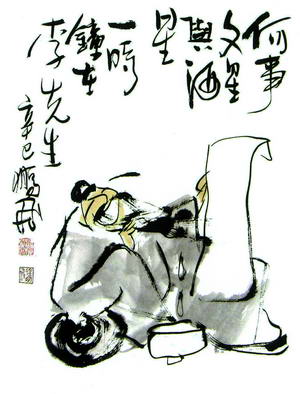 何事
文星
與酒
星
一時
鐘在
李先生
辛巳